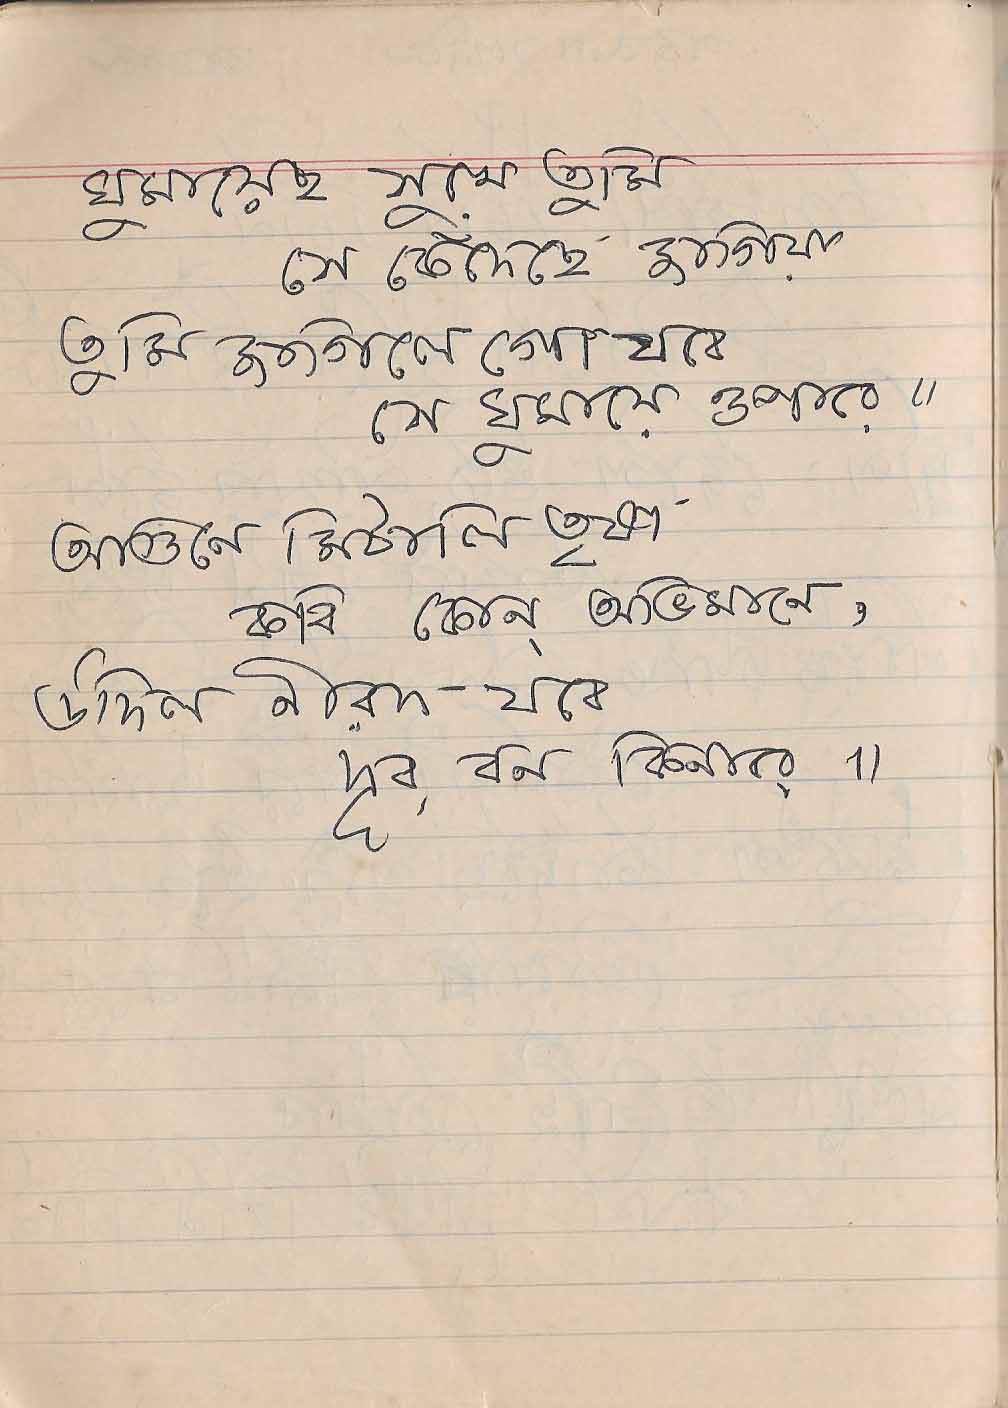 ঘুমায়েছ সুখে তুমি
সে কেঁদেছে জাগিয়া
তুমি জাগিলে গো যবে
সে ঘুমায়ে ওপারে ॥
আগুনে মিটালি তৃষা
কবি কোন্ অভিমানে,
উদিল নীরদ যবে
দূর বন কিনারে ॥